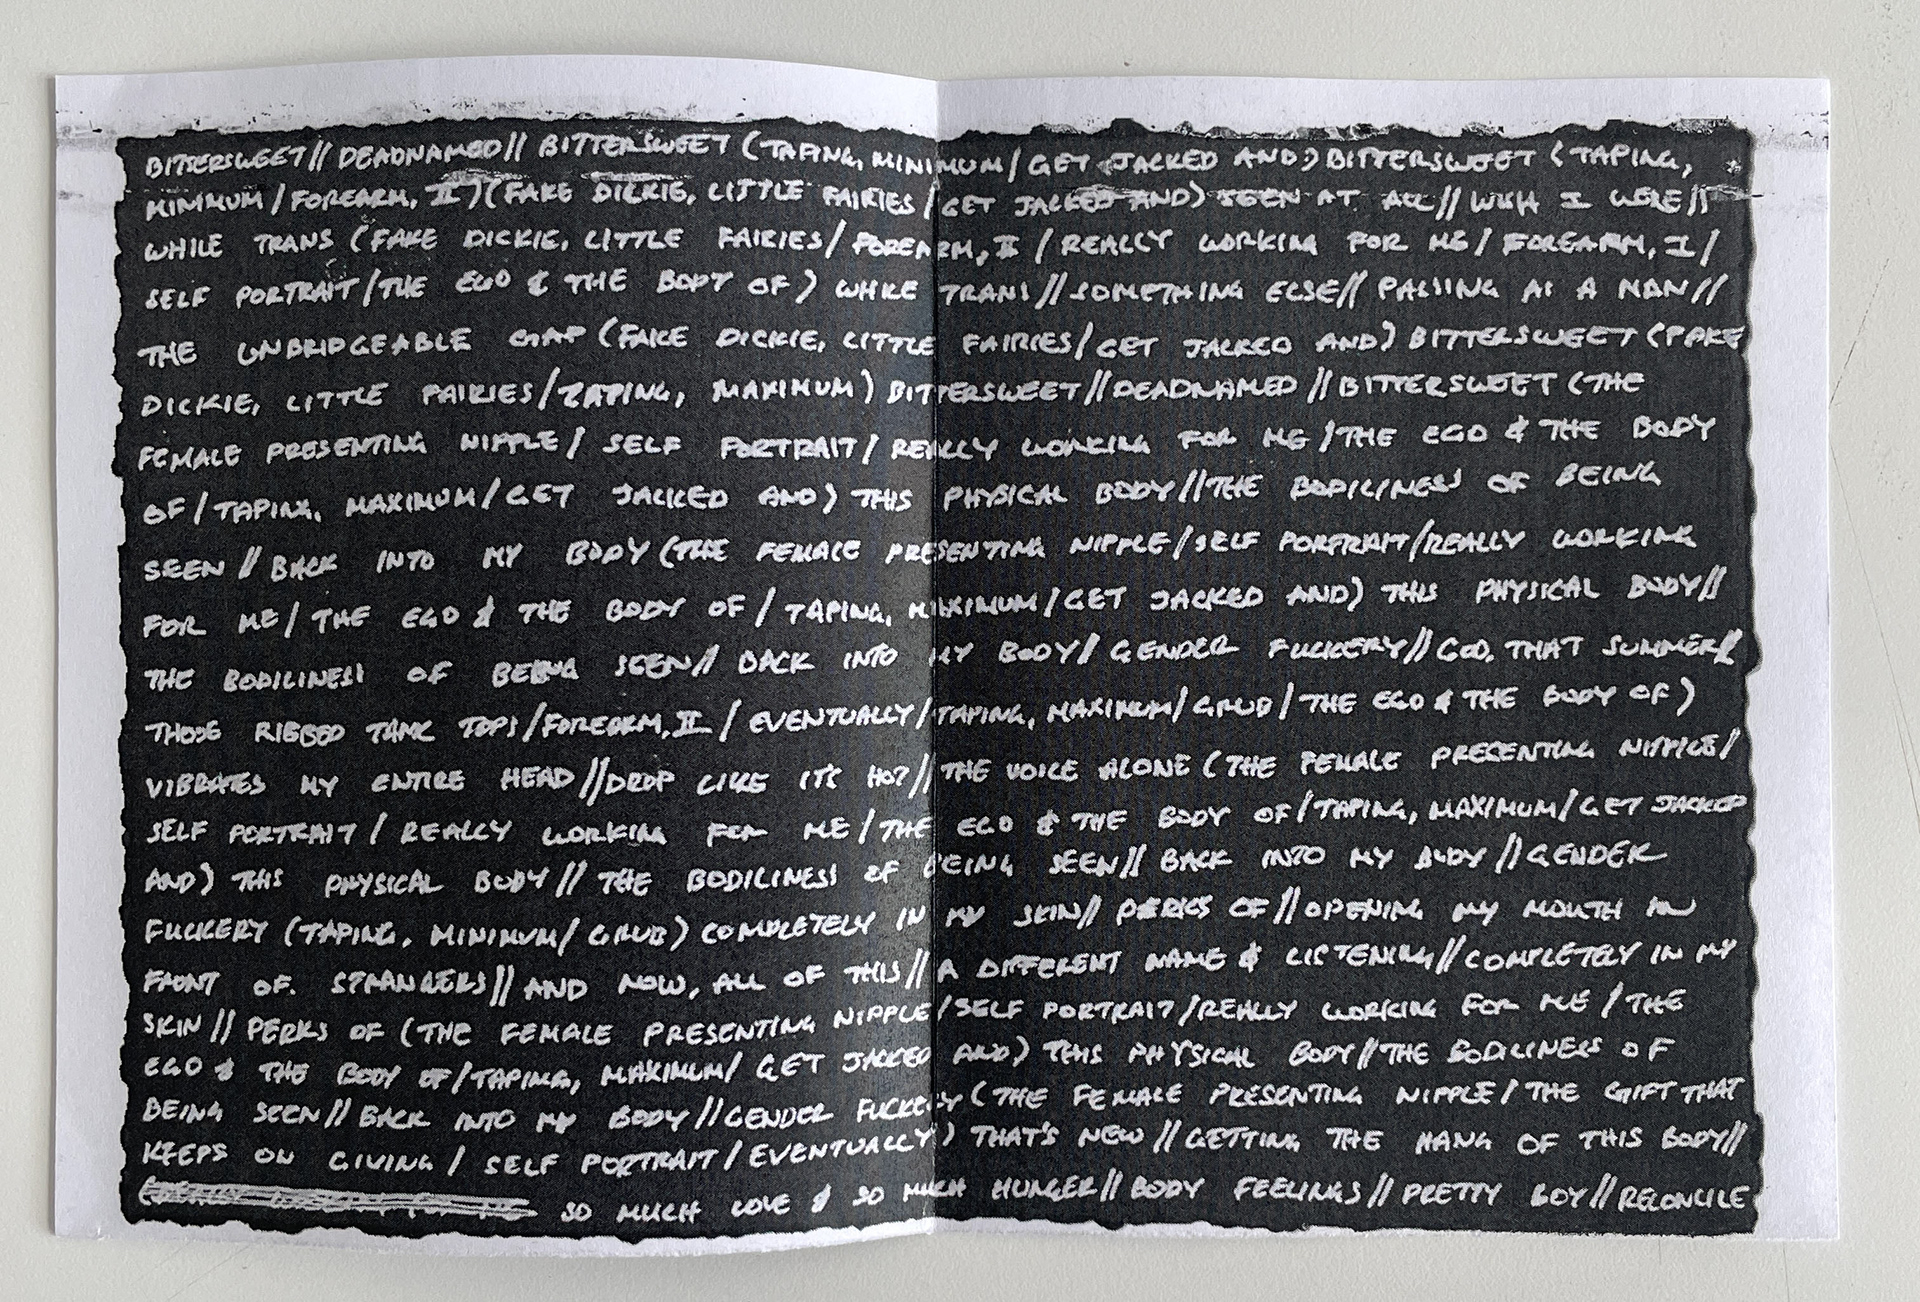 BITTERSWEET// DEADNAMED// BITTERSWEET (TAPING, MINIMUM/ GET JACKED AND) BITTERSWEET (TAPING,
MINIMUM/ FOREARM, II) (FAKE DICKIE, LITTLE FAIRIES/ GET JACKED AND) SEEN AT ALL// WISH I WERE//
WHILE TRANS (FAKE DICKIE, LITTLE FAIRIES/ FOREARM, II / REALLY WORKING FOR ME/ FOREARM, I/
SELF PORTRAIT/THE EGO & THE BODY OF) WHILE TRANS// SOMETHING ELSE// PASSING AS A MAN//
THE UNBRIDGEABLE GAP (FAKE DICKIE, LITTLE FAIRIES/ GET JACKED AND) BITTERSWEET (FAKE
DICKIE, LITTLE FAIRIES/TAPING, MAXIMUM) BITTERSWEET// DEADNAMED // BITTERSWEET (THE
FEMALE PRESENTING NIPPLE/ SELF PORTRAIT/ REALLY WORKING FOR ME /THE EGO & THE BODY
OF/TAPING, MAXIMUM/GET JACKED AND) THIS PHYSICAL BODY//THE BODILINESS OF BEING
SEEN // BACK INTO MY BODY (THE FEMALE PRESENTING NIPPLE/SELF PORTRAIT/REALLY WORKING
FOR ME/ THE EGO & THE BODY OF/ TAPING, MAXIMUM/GET JACKED AND) THIS PHYSICAL BODY//
THE BODILINESS OF BEING SEEN// BACK INTO MY BODY// GENDER FUCKERY// GOD, THAT SUMMER//
THOSE RIBBED TANK TOPS/FOREARM, II / EVENTUALLY/TAPING, MAXIMUM/GRUB/THE EGO & THE BODY OF)
VIBRATES MY ENTIRE HEAD//DROP LIKE IT'S HOT// THE VOICE ALONE (THE FEMALE PRESENTING NIPPLE/
SELF PORTRAIT/ REALLY WORKING FOR ME/THE EGO & THE BODY OF/TAPING, MAXIMUM/GET JACKED
AND) THIS PHYSICAL BODY// THE BODILINESS OF BEING SEEN// BACK INTO MY BODY //GENDER
FUCKERY (TAPING, MINIMUM/ GRUB) COMPLETELY IN MY SKIN// PERKS OF// OPENING MY MOUTH IN
FRONT OF. STRANGERS// AND NOW, ALL OF THIS// A DIFFERENT NAME & LISTENING//COMPLETELY IN MY
SKIN // PERKS OF (THE FEMALE PRESENTING NIPPLE/SELF PORTRAIT/REALLY WORKING FOR ME /THE
EGO & THE BODY OF/TAPING, MAXIMUM/ GET JACKED AND) THIS PHYSICAL BODY//THE BODILINESS OF
BEING SEEN// BACK INTO MY BODY //GENDER FUCKERY (THE FEMALE PRESENTING NIPPLE/ THE GIFT THAT
KEEPS ON GIVING/ SELF PORTRAIT/EVENTUALLY) THAT'S NEW // GETTING THE HANG OF THIS BODY//
SO MUCH LOVE & SO MUCH HUNGER// BODY FEELINGS// PRETTY BOY// RECONCILE